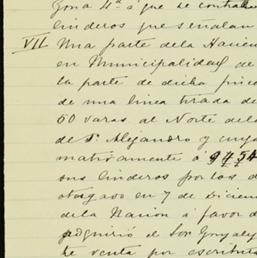 Zona 4ª á que se contrae
linderos que señalan
VII Una parte dela Hacien
en Municipalidad de
la parte de dicha finca
de una linea tirada de
60 varas al Norte del
de Sn. Alejandro y cuya
mativamente á 9454
sus linderos por los d
otorgaso en 7 de Diciem
dela Nacion á favor d
adquirió de los Gonzalez
de venta por escritura